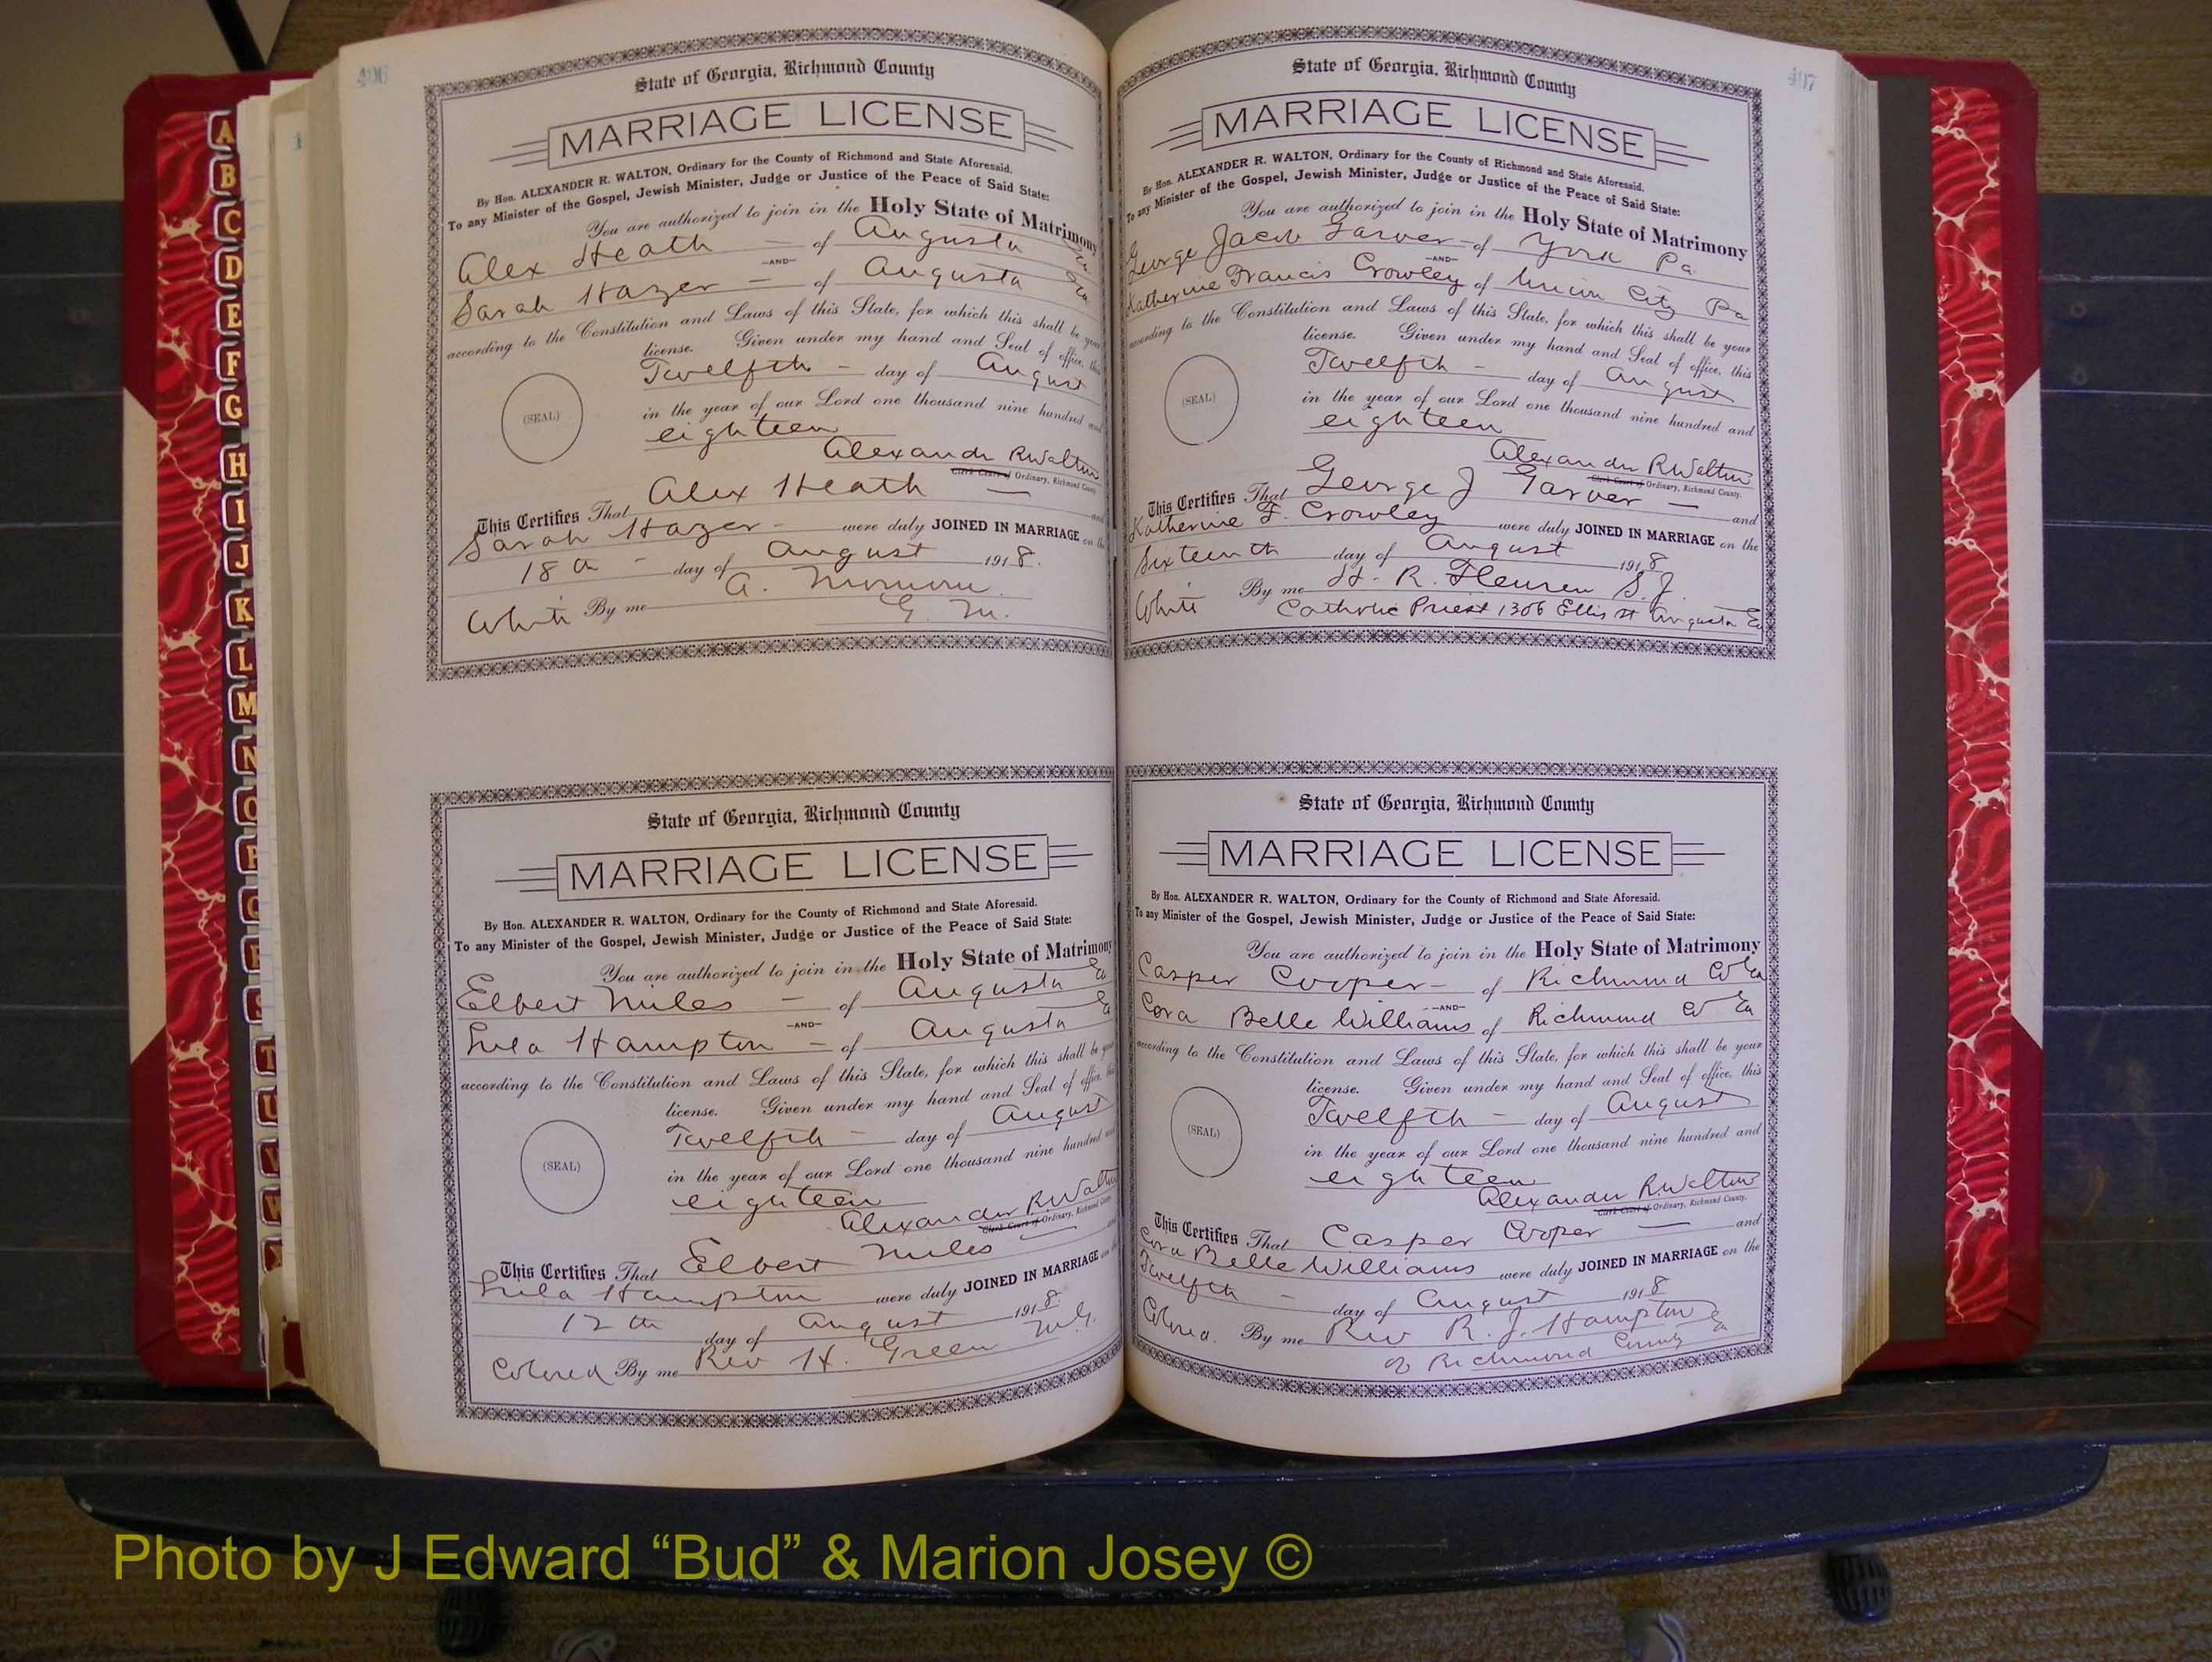 496
State of Georgia, Richmond County
MARRIAGE LICENSE
By Hon. ALEXANDER R. WALTON, Ordinary for the County of Richmond and State Aforesaid.
To any Minister of the Gospel, Jewish Minister, Judge or Justice of the Peace of Said State:
You are authorized to join in the Holy State of Matrimony
Alex Heath — of Augusta Ga
—AND—
Sarah Hazer — of Augusta Ga
according to the Constitution and Laws of this State, for which this shall be your
license. Given under my hand and Seal of office, this
Twelfth — day of August
(SEAL)
in the year of our Lord one thousand nine hundred and
eighteen
Alexander R Walton
Clerk Court of Ordinary, Richmond County.
This Certifies That Alex Heath — and
Sarah Hazer — were duly JOINED IN MARRIAGE on the
18th — day of August 1918.
White By me A.
G. M.
State of Georgia, Richmond County
MARRIAGE LICENSE
By Hon. ALEXANDER R. WALTON, Ordinary for the County of Richmond and State Aforesaid.
To any Minister of the Gospel, Jewish Minister, Judge or Justice of the Peace of Said State:
You are authorized to join in the Holy State of Matrimony
Elbert Miles — of Augusta Ga
—AND—
Lula Hampton — of Augusta Ga
according to the Constitution and Laws of this State, for which this shall be your
license. Given under my hand and Seal of office, this
Twelfth — day of August
(SEAL)
in the year of our Lord one thousand nine hundred and
eighteen
Alexander R Walton
Clerk Court of Ordinary, Richmond County.
This Certifies That Elbert Miles — and
Lula Hampton were duly JOINED IN MARRIAGE on the
12th day of August 1918.
Colored By me Rev H. Green M.G.
497
State of Georgia, Richmond County
MARRIAGE LICENSE
By Hon. ALEXANDER R. WALTON, Ordinary for the County of Richmond and State Aforesaid.
To any Minister of the Gospel, Jewish Minister, Judge or Justice of the Peace of Said State:
You are authorized to join in the Holy State of Matrimony
George Jacob Garver — of York Pa
—AND—
Katherine Francis Crowley of Union City Pa
according to the Constitution and Laws of this State, for which this shall be your
license. Given under my hand and Seal of office, this
Twelfth — day of August
(SEAL)
in the year of our Lord one thousand nine hundred and
eighteen
Alexander R Walton
Clerk Court of Ordinary, Richmond County.
This Certifies That George J Garver — and
Katherine F. Crowley were duly JOINED IN MARRIAGE on the
Sixteenth day of August 1918
White By me H. R. Fleuren S.J.
Catholic Priest 1306 Ellis St Augusta Ga
State of Georgia, Richmond County
MARRIAGE LICENSE
By Hon. ALEXANDER R. WALTON, Ordinary for the County of Richmond and State Aforesaid.
To any Minister of the Gospel, Jewish Minister, Judge or Justice of the Peace of Said State:
You are authorized to join in the Holy State of Matrimony
Casper Cooper — of Richmond Co Ga
—AND—
Cora Belle Williams of Richmond Co Ga
according to the Constitution and Laws of this State, for which this shall be your
license. Given under my hand and Seal of office, this
Twelfth — day of August
(SEAL)
in the year of our Lord one thousand nine hundred and
eighteen
Alexander R. Walton
Clerk Court of Ordinary, Richmond County.
This Certifies That Casper Cooper — and
Cora Belle Williams were duly JOINED IN MARRIAGE on the
Twelfth — day of August 1918
Colored. By me Rev R. J. Hampton
of Richmond County Ga
A
B
C
D
E
F
G
H
I
J
K
L
M
N
O
P
Q
R
S
T
U
V
W
Photo by J Edward “Bud” & Marion Josey ©